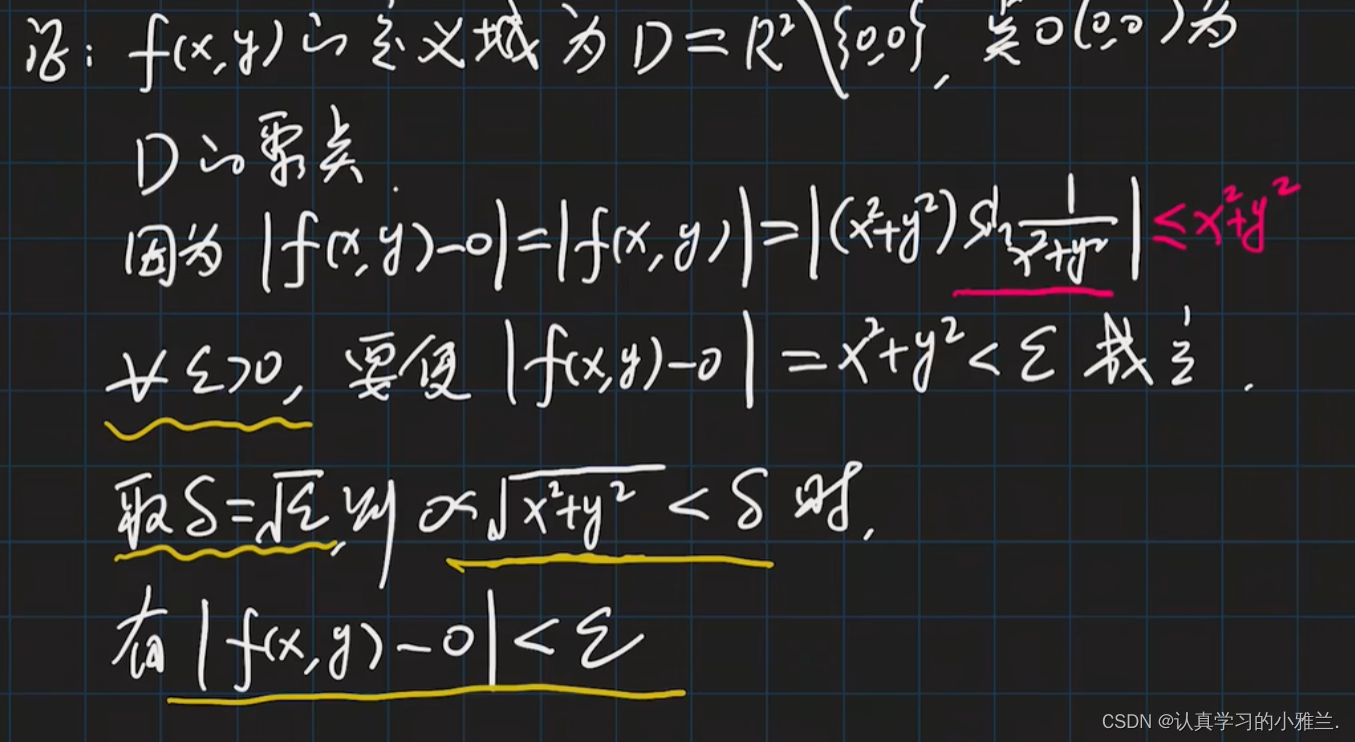 证: f(x,y)的定义域为D=R²\{0,0}, 点O(0,0)为
D的聚点.
因为 |f(x,y)-0|=|f(x,y)|=|(x²+y²) sin 1/(x²+y²)| ≤x²+y²
∀ε>0, 要使 |f(x,y)-0| =x²+y²<ε 成立.
取δ=√ε, 则 0<√(x²+y²) < δ 时,
有|f(x,y)-0|<ε
CSDN @认真学习的小雅兰.